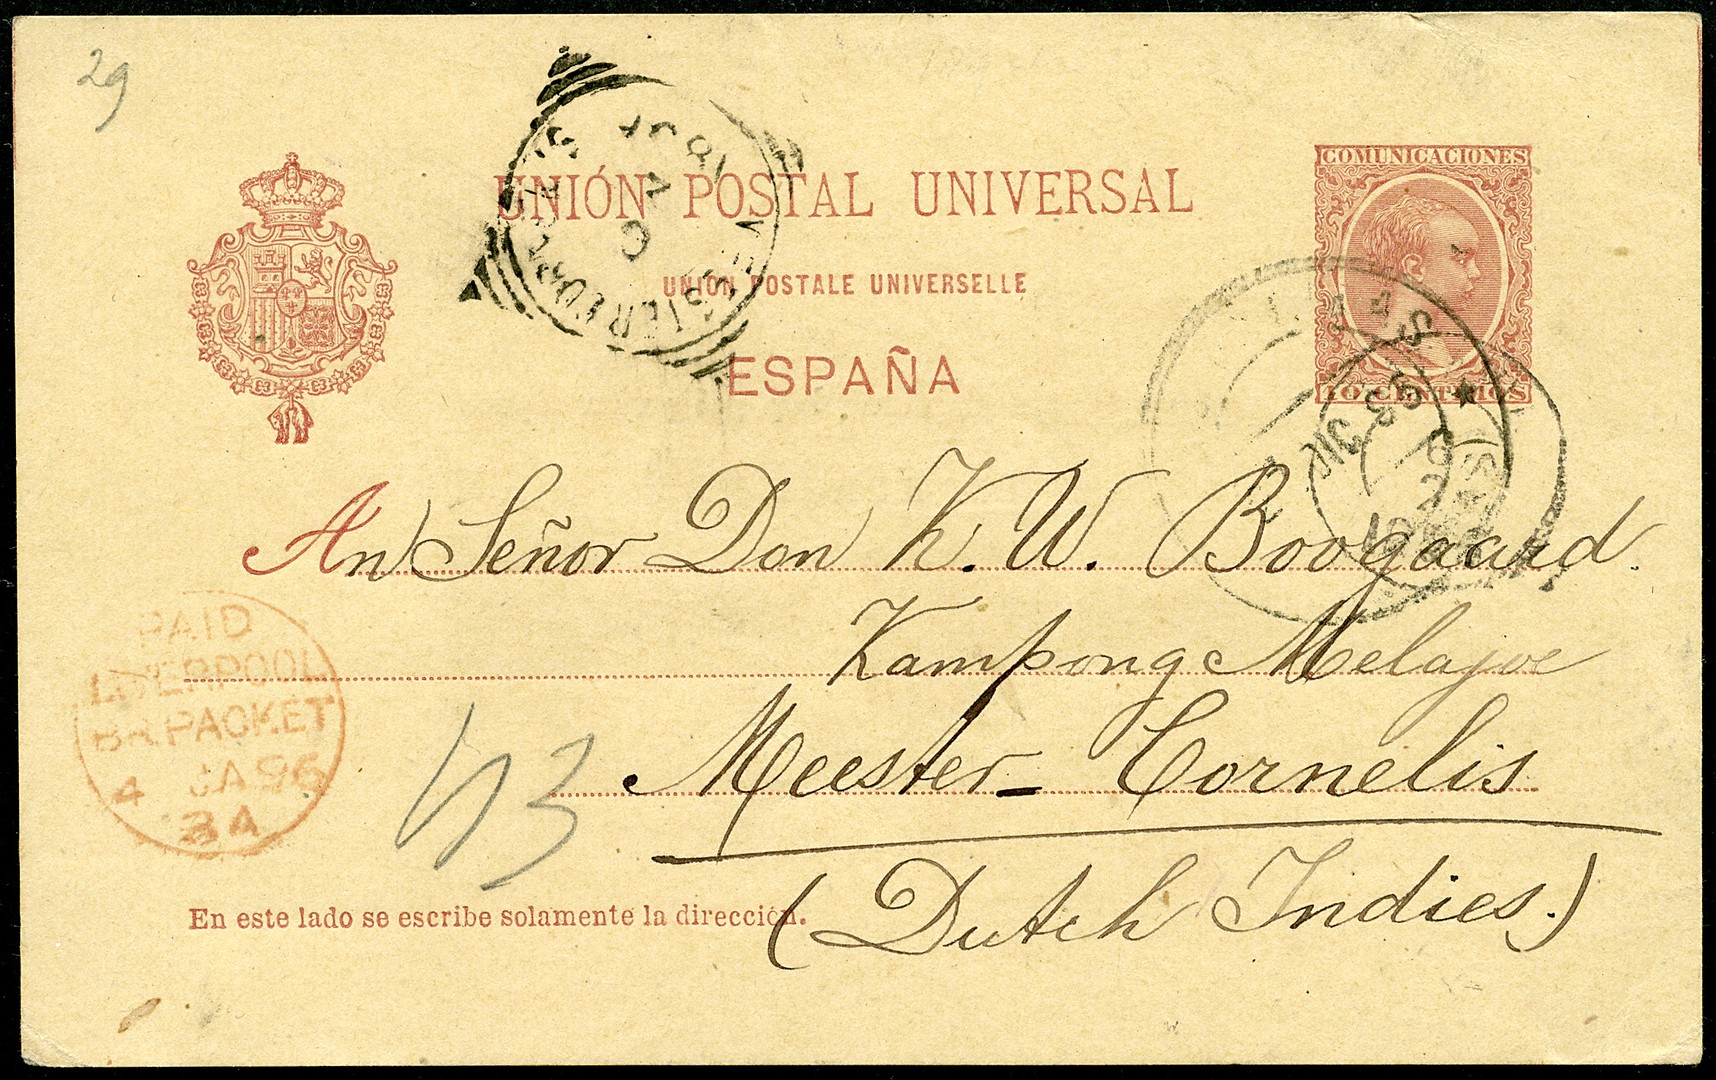 29
COMUNICACIONES
UNIÓN POSTAL UNIVERSAL
UNION POSTALE UNIVERSELLE
ESPAÑA
10 CENTIMOS
An Señor Don K. W. Boogaard.
Kampong Melajoe
Meester-Cornelis
(Dutch Indies.)
PAID
LIVERPOOL
BR. PACKET
4 JA 96
3A
En este lado se escribe solamente la dirección.